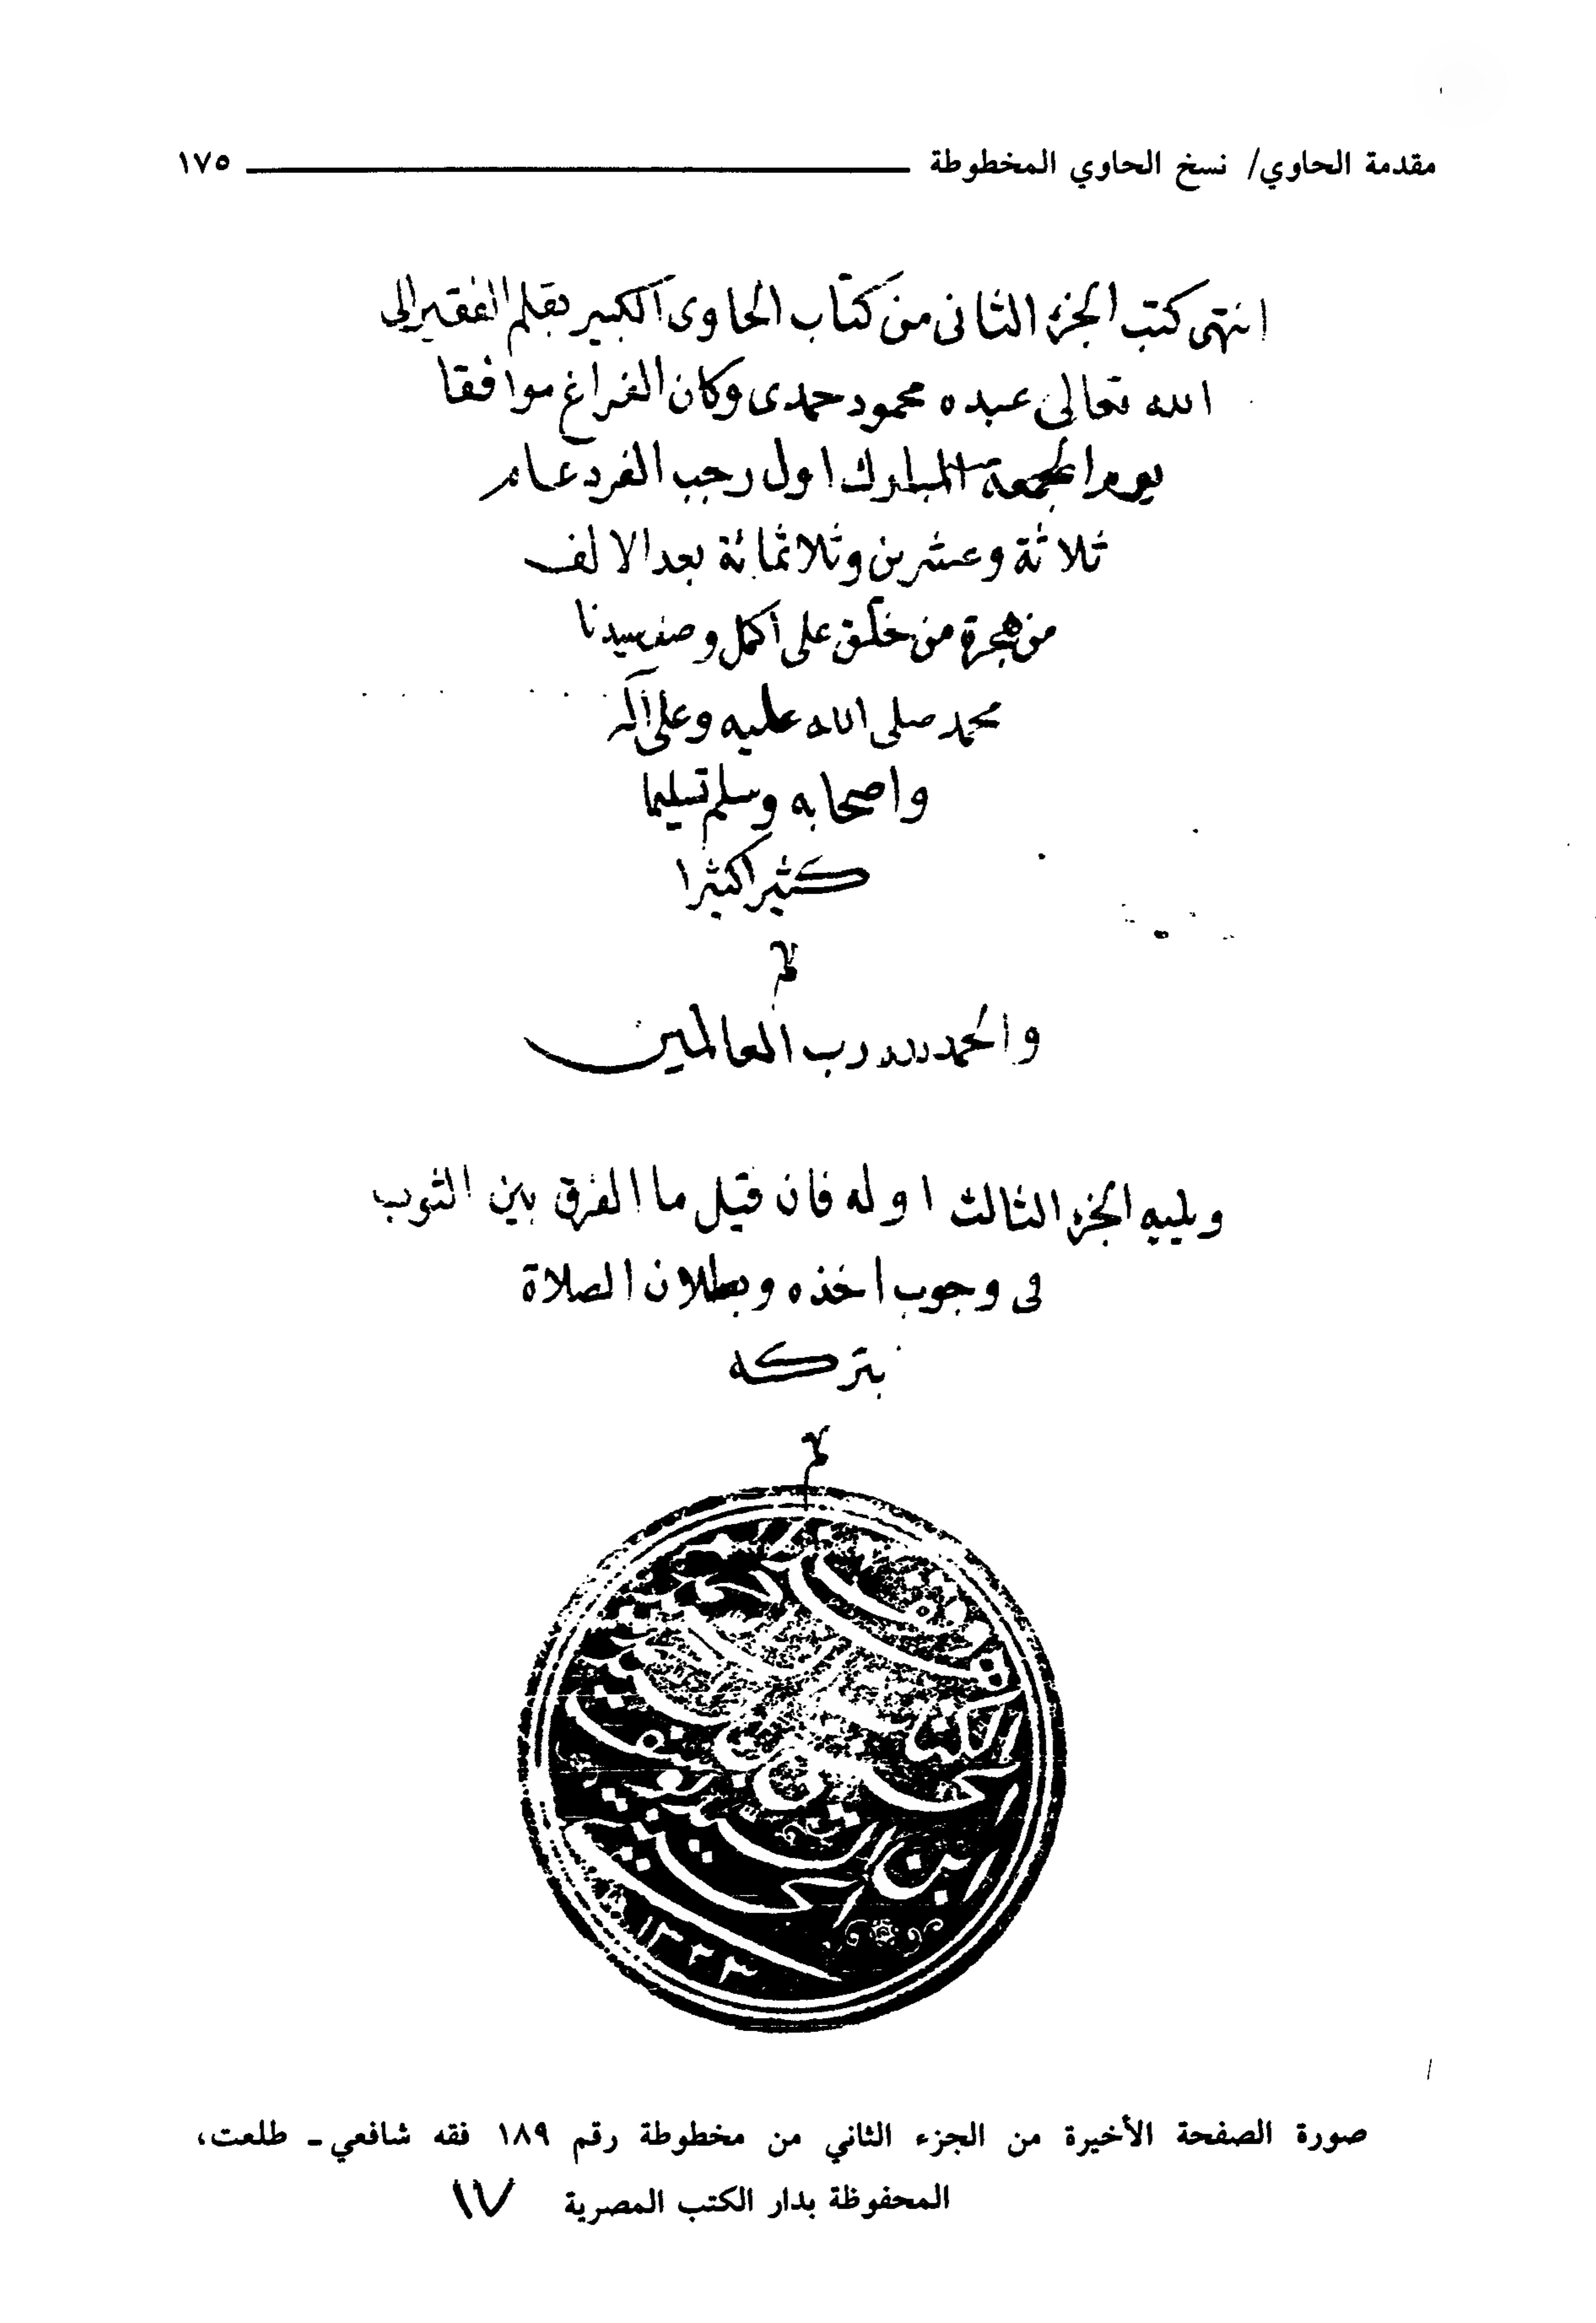 مقدمة الحاوي/ نسخ الحاوي المخطوطة ١٧٥
انتهى كتب الجزء الثانى من كتاب الحاوى الكبير بقلم الفقير الى
الله تعالى عبده محمود حمدى وكان الفراغ موافقا
يوم الجمعة المبارك اول رجب الفرد عام
ثلاثة وعشرين وثلاثمائة بعد الالف
من هجرة من خلق على اكمل وصف سيدنا
محمد صلى الله عليه وعلى آله
واصحابه وسلم تسليما
كثيرا كثيرا
والحمد لله رب العالمين
ويليه الجزء الثالث اوله فان قيل ما الفرق بين الثوب
فى وجوب اخذه وبطلان الصلاة
بتركه
١٣٢٢
صورة الصفحة الأخيرة من الجزء الثاني من مخطوطة رقم ١٨٩ فقه شافعي ـ طلعت،
المحفوظة بدار الكتب المصرية ١٧